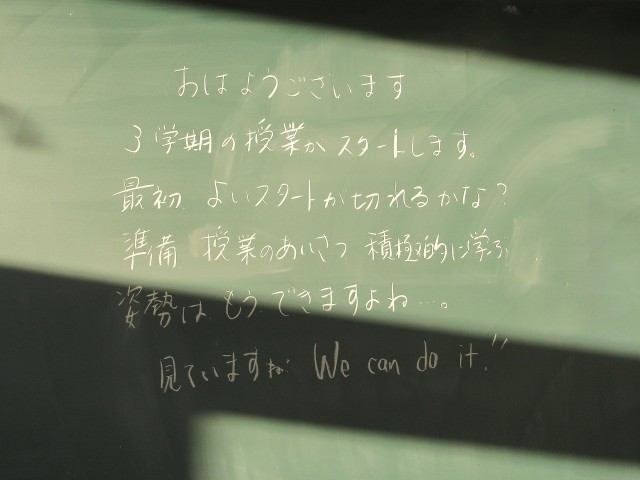 おはようございます
3学期の授業がスタートします。
最初 よいスタートが切れるかな?
準備 授業のあいさつ 積極的に学ぶ
姿勢は もうできますよね…。
見ていますね。 We can do it!!